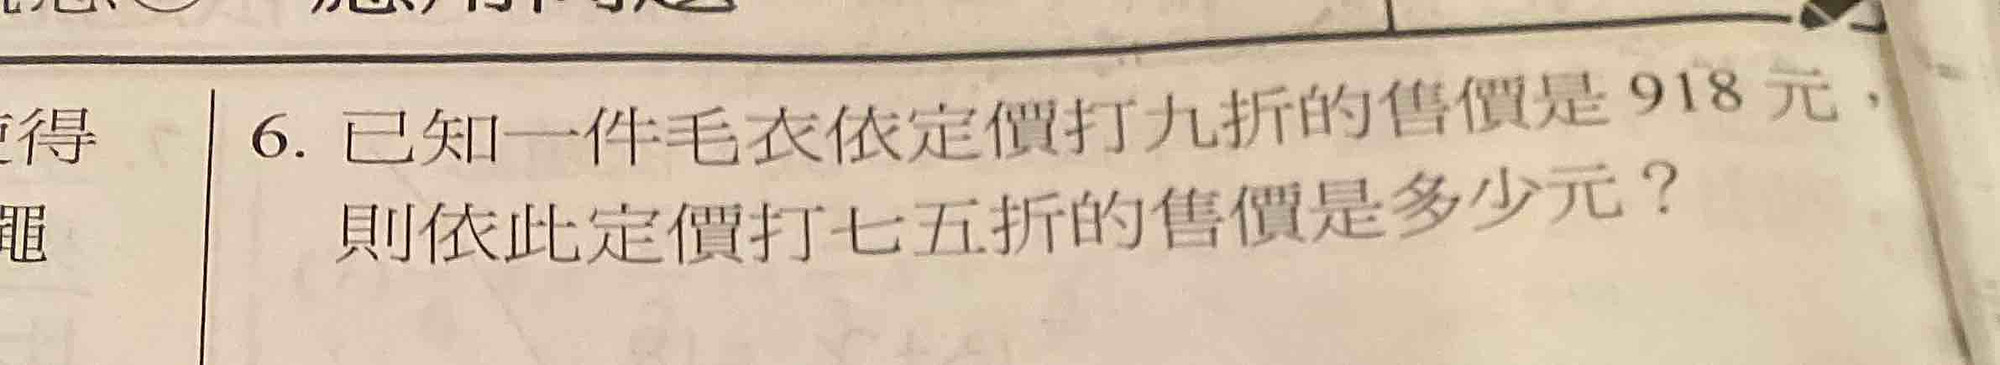 得
6. 已知一件毛衣依定價打九折的售價是 918 元，
則依此定價打七五折的售價是多少元？